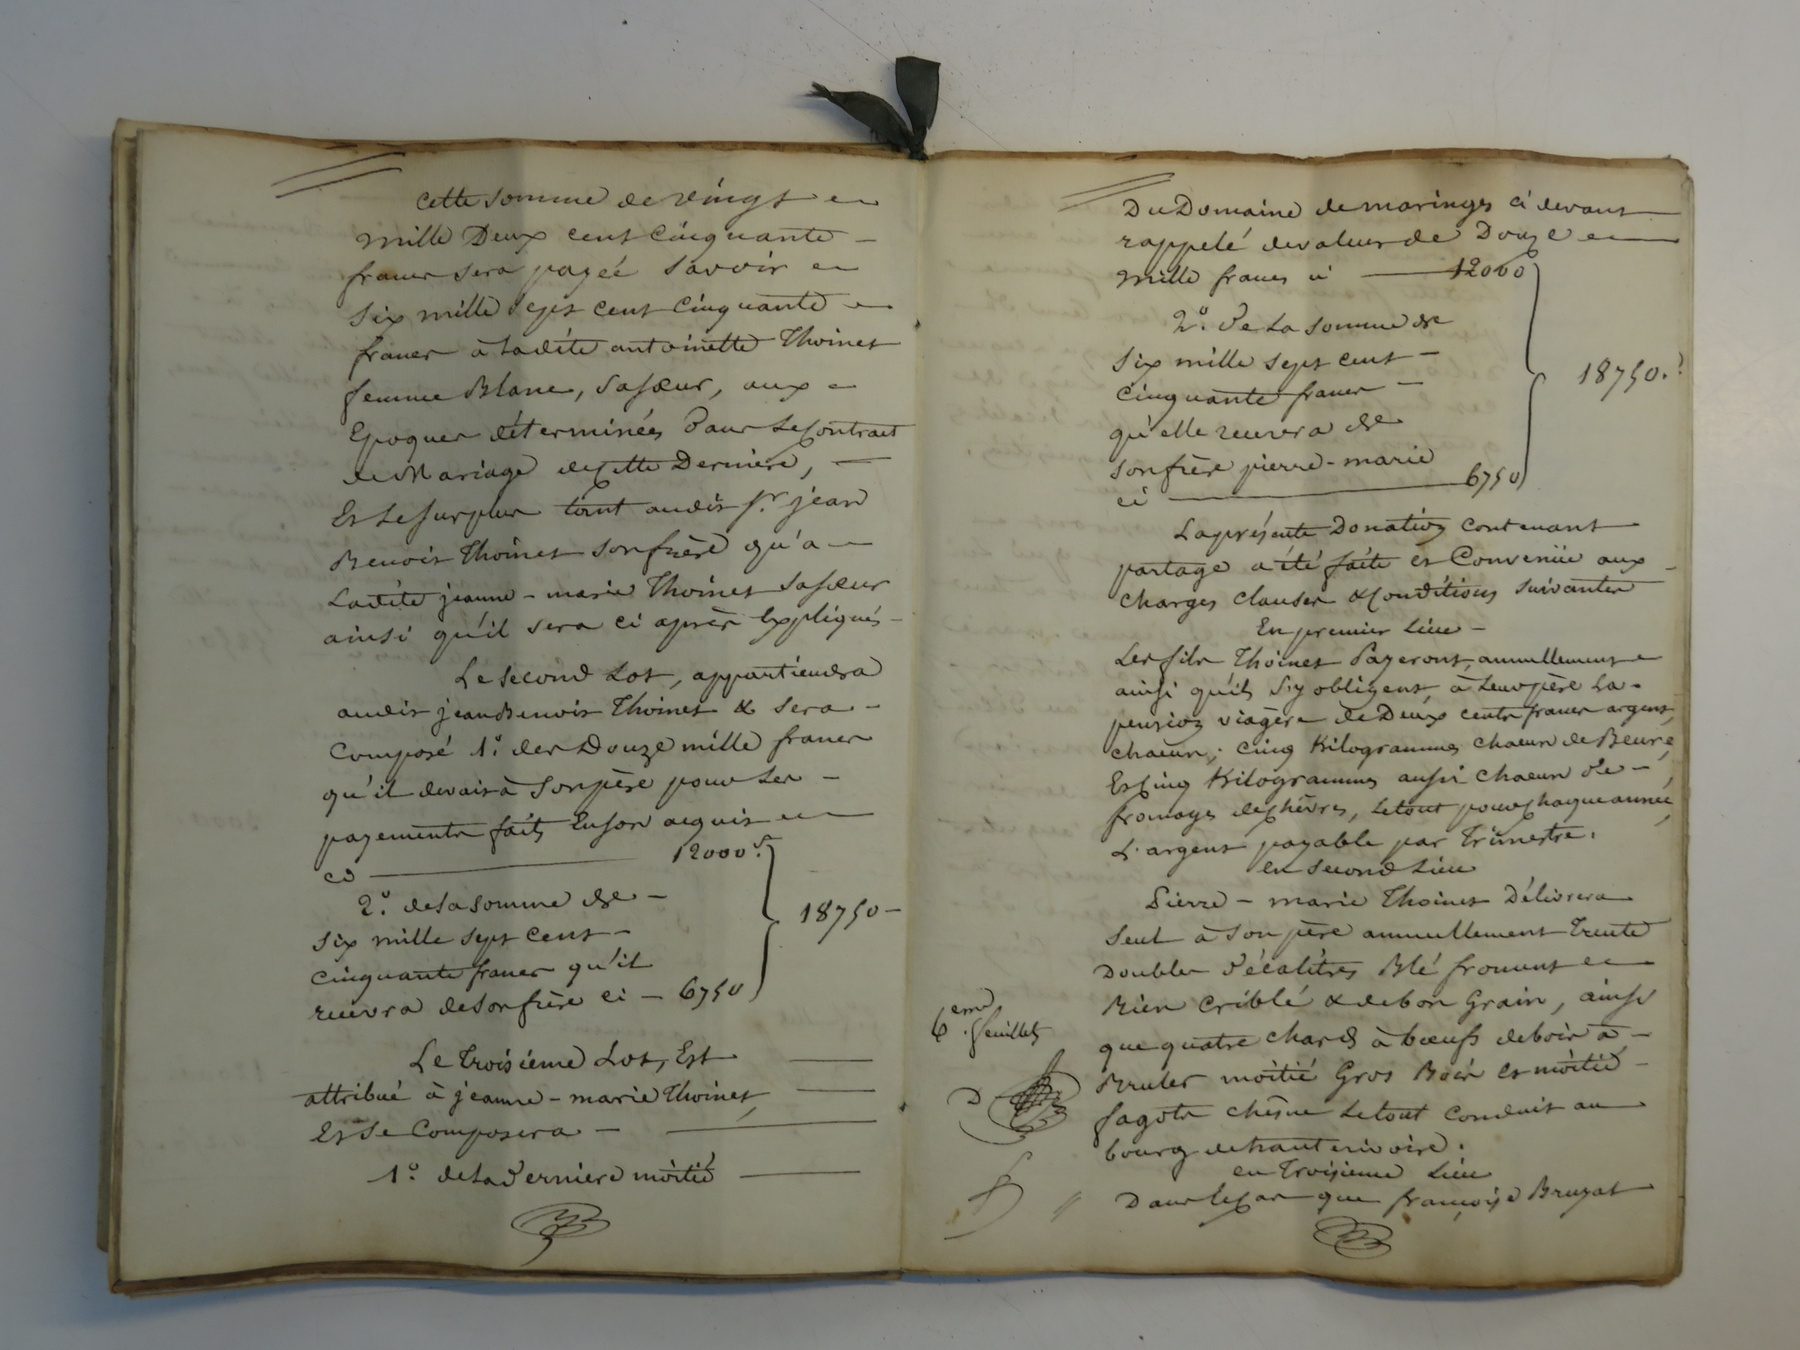 Cette somme de vingt
mille Deux cent cinquante
francs sera payée savoir
Six mille sept cent cinquante
francs à ladite antoinette Thoinet
femme Blanc, sa sœur, aux
Epoques déterminées dans le Contrat
de Mariage de cette Dernière,
Et le surplus tant audit s.r jean
Benoit Thoinet son frère qu'a
Ladite jeanne-marie Thoinet sa sœur
ainsi qu'il sera ci après Expliqués
Le second Lot, appartiendra
audit jean Benoit Thoinet & sera
Composé 1.o des Douze mille francs
qu'il devait à son père pour les
payements faits En son acquis
ci 12000.f
2.o de la somme de
Six mille sept cent
cinquante francs qu'il
recevra de son frère ci 6750
18750
Le troisième Lot, Est
attribué à jeanne-marie Thoinet,
Et se Composera
1.o de la Dernière moitié
Du Domaine de maringes ci devant
rappelé de valeur de Douze
mille francs ci 12000
2.o De la somme de
Six mille sept cent
cinquante francs
qu'elle recevra de
son frère pierre-marie
ci 6750
18750.f
La présente Donation contenant
partage a été faite et Convenüe aux
charges clauses & Conditions suivantes
En premier Lieu
Les fils Thoinet Payeront annuellement
ainsi qu'ils s'y obligent, à leur père la
pension viagère de Deux cents francs argent,
chacun; cinq Kilogrammes chacun de Beure,
Et cinq Kilogrammes aussi chacun de
fromages de chèvres, le tout pour chaque année,
L'argent payable par Trimestre.
en second Lieu
Pierre-marie Thoinet Délivrera
seul à son père annuellement Trente
Doubles Décalitres Blé froment
Bien criblé & de bon Grain, ainsi
que quatre chars à bœufs de bois à
Bruler moitié Gros Bois et moitié
fagots chêne le tout Conduit au
bourg de haute rivoire.
en Troisième Lieu
Dans le cas que françoise Bruyat
6eme
feuillet